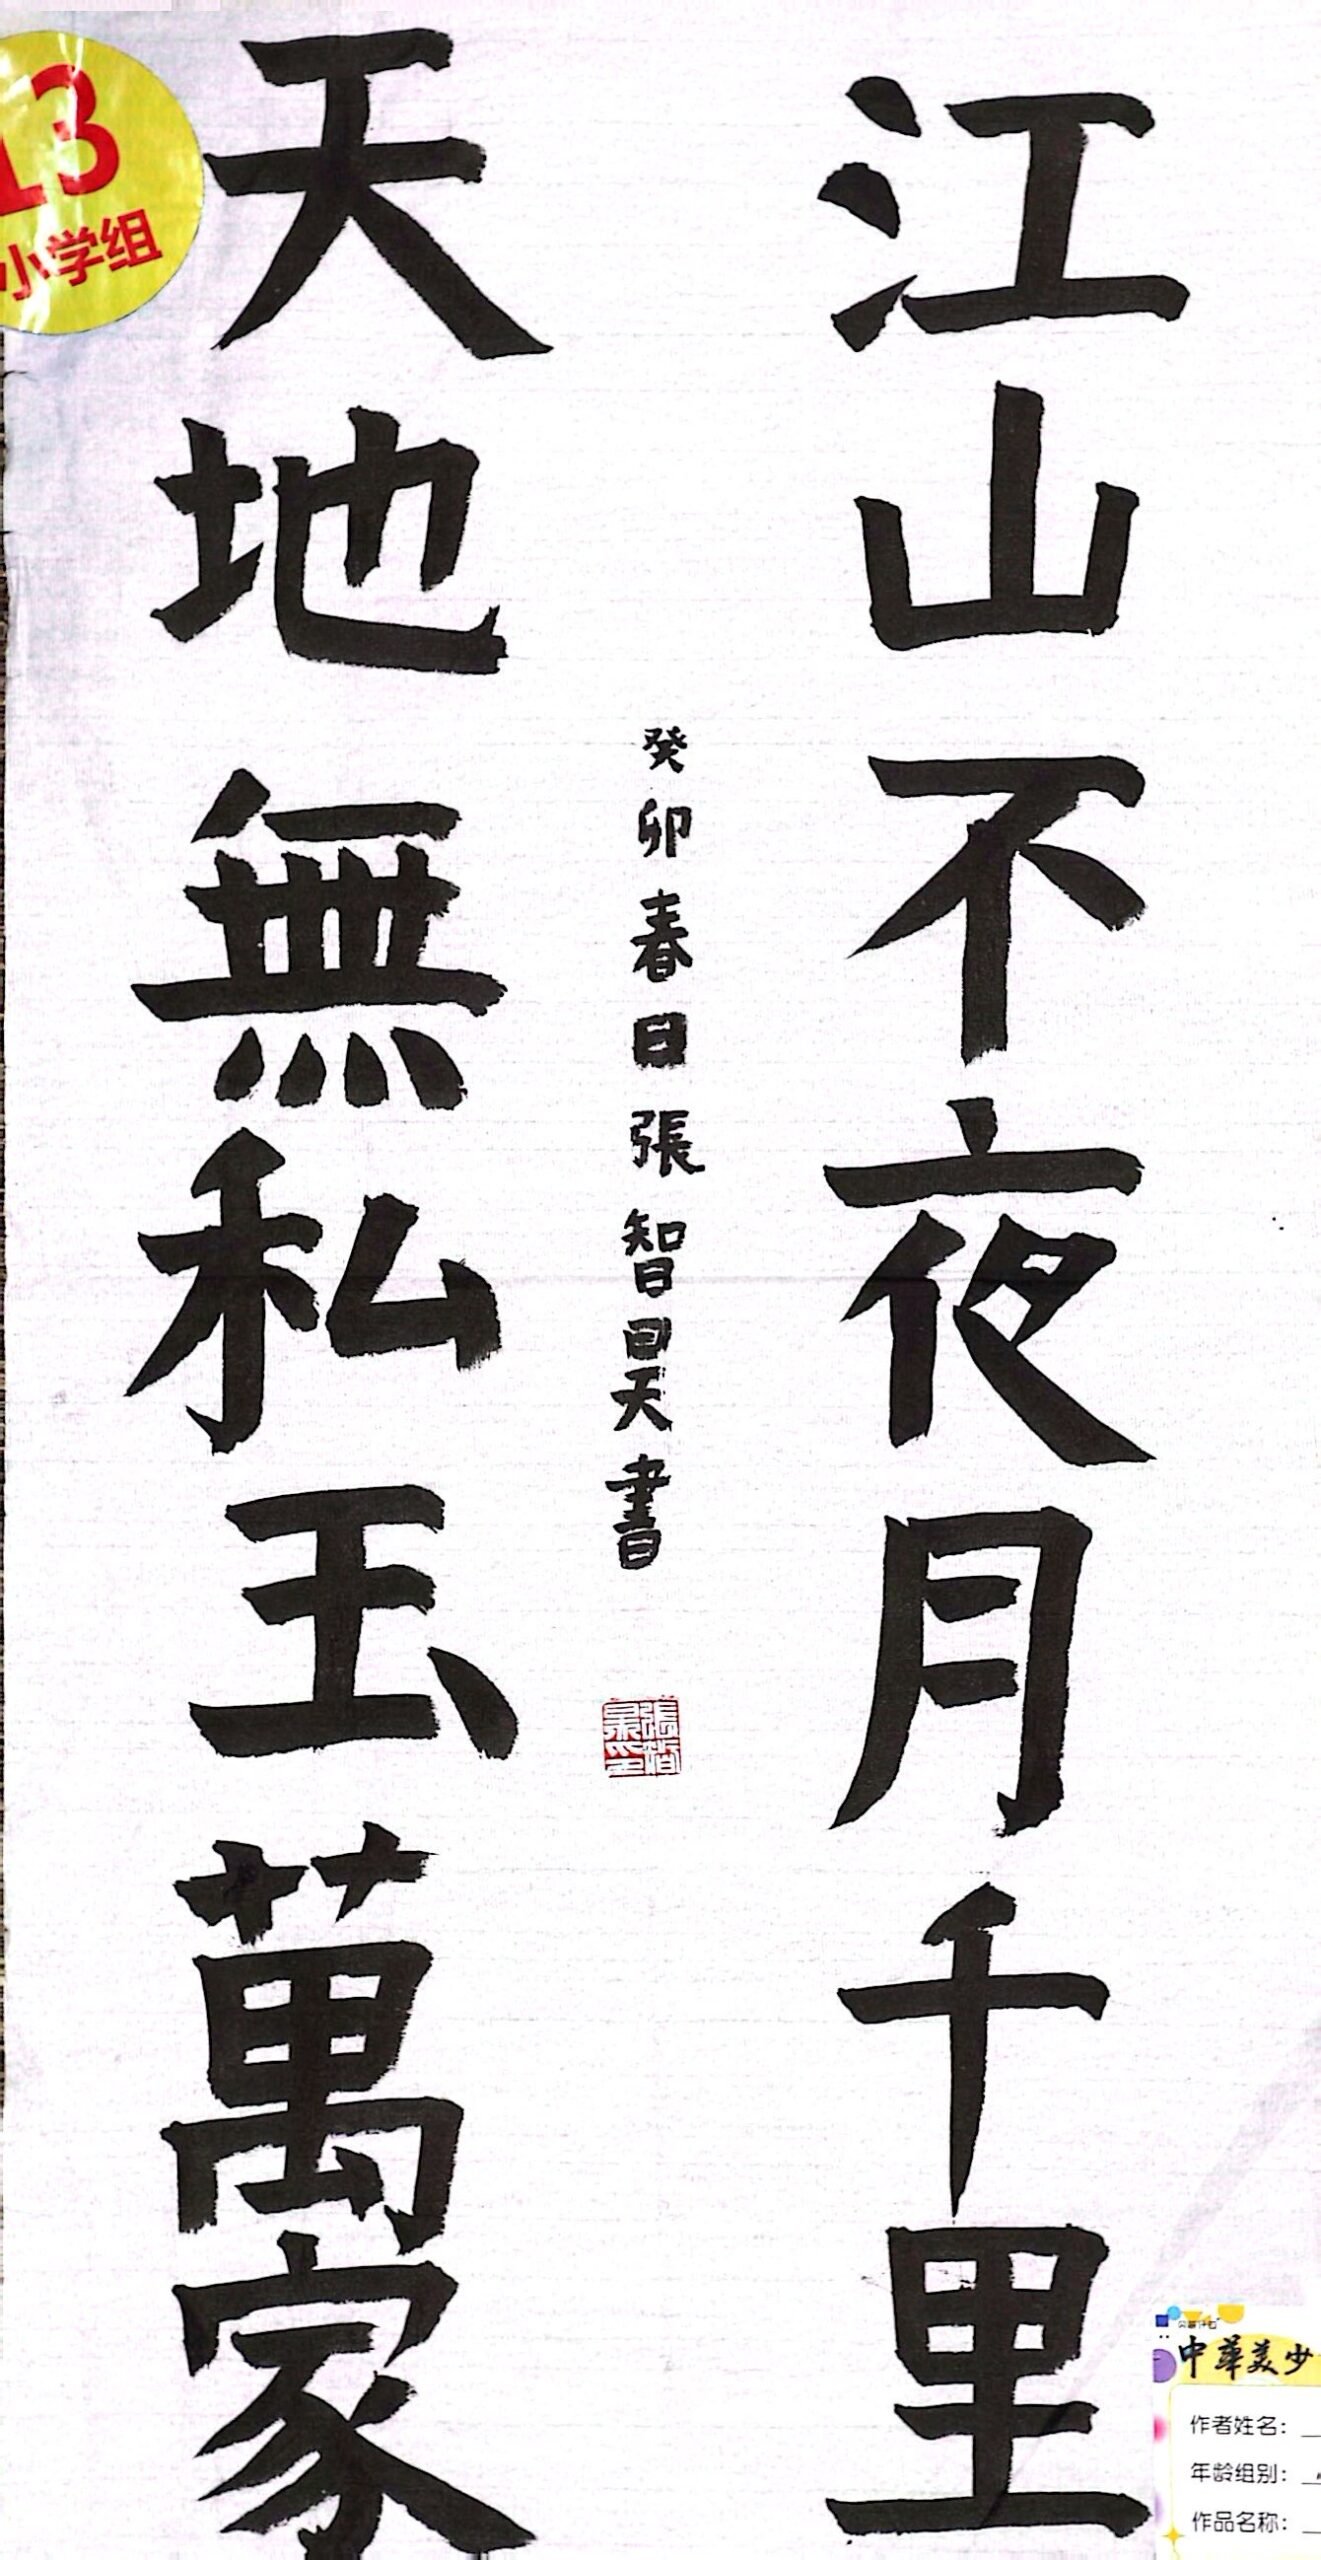 江山不夜月千里
天地無私玉萬家
癸卯春日張智昊書
13
小学组
中華美少
作者姓名：
年龄组别：
作品名称：